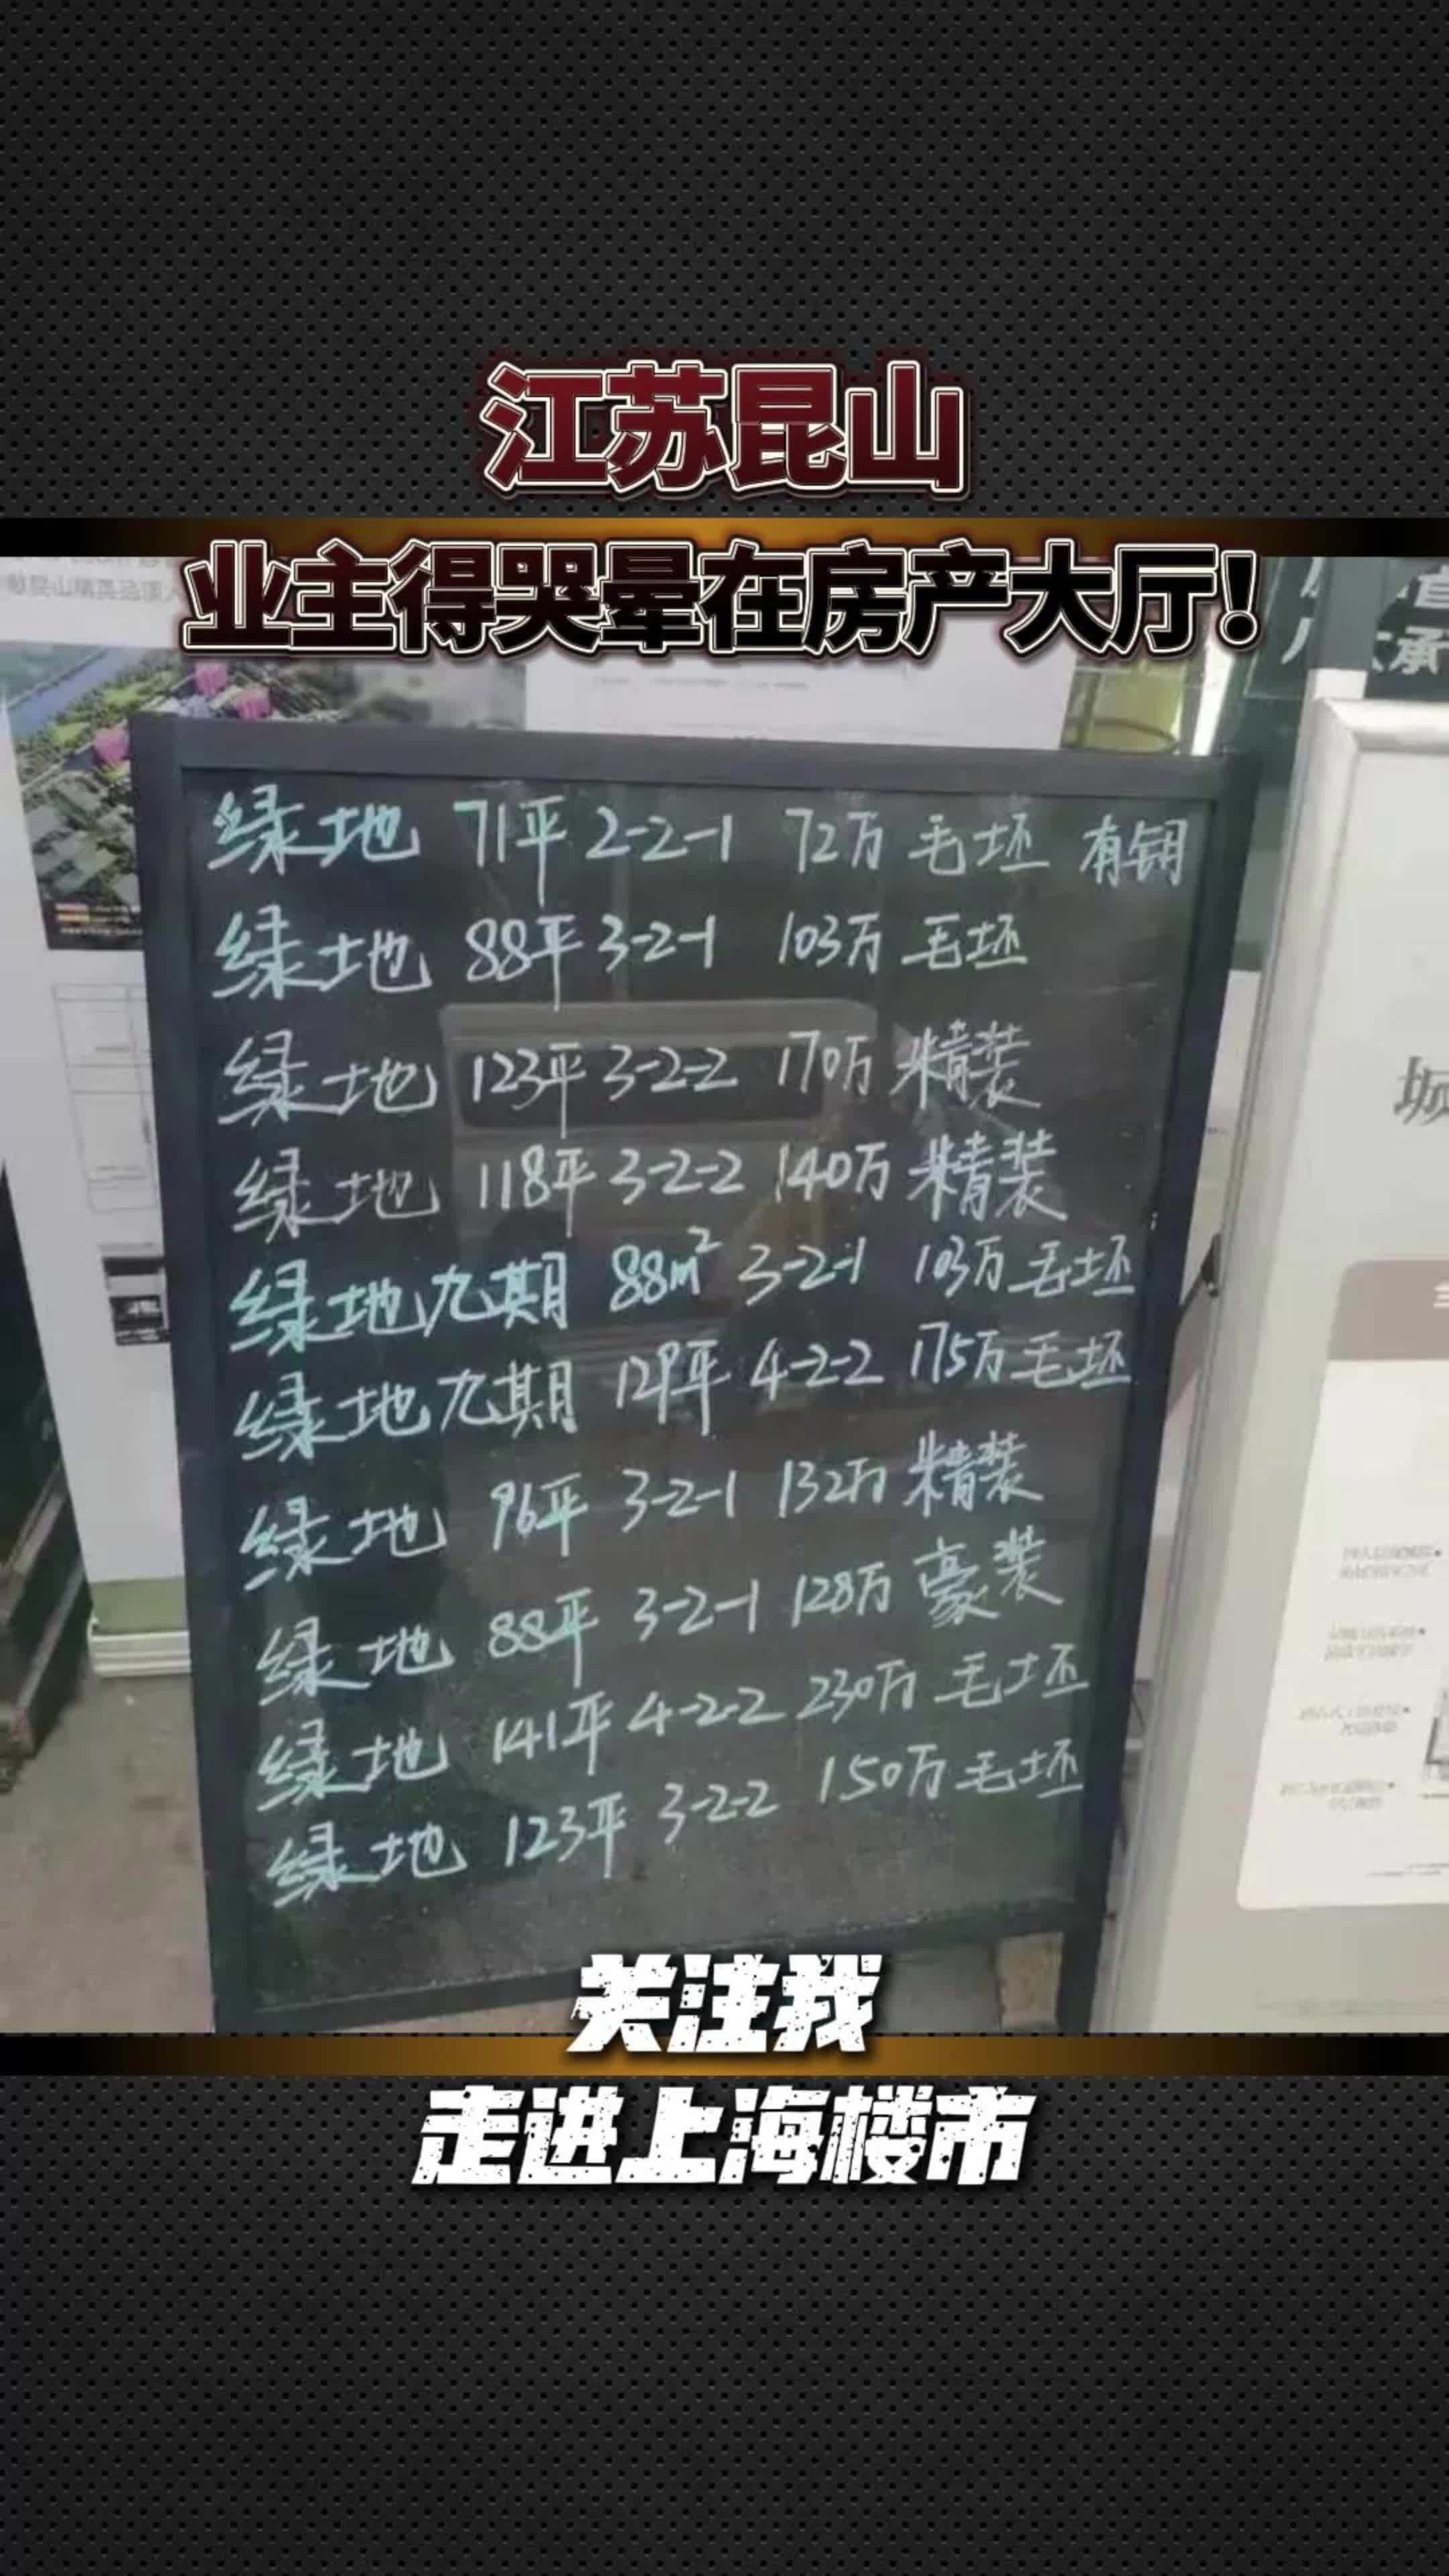 江苏昆山
业主得哭晕在房产大厅!
绿地 71平 2-2-1 72万 毛坯 有钥
绿地 88平 3-2-1 103万 毛坯
绿地 123平 3-2-2 170万 精装
绿地 118平 3-2-2 140万 精装
绿地九期 88m² 3-2-1 103万 毛坯
绿地九期 129平 4-2-2 175万 毛坯
绿地 96平 3-2-1 132万 精装
绿地 88平 3-2-1 128万 豪装
绿地 141平 4-2-2 230万 毛坯
绿地 123平 3-2-2 150万 毛坯
关注我
走进上海楼市